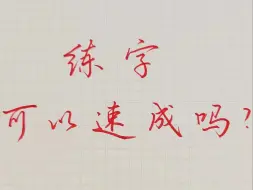 练字
可以速成吗?